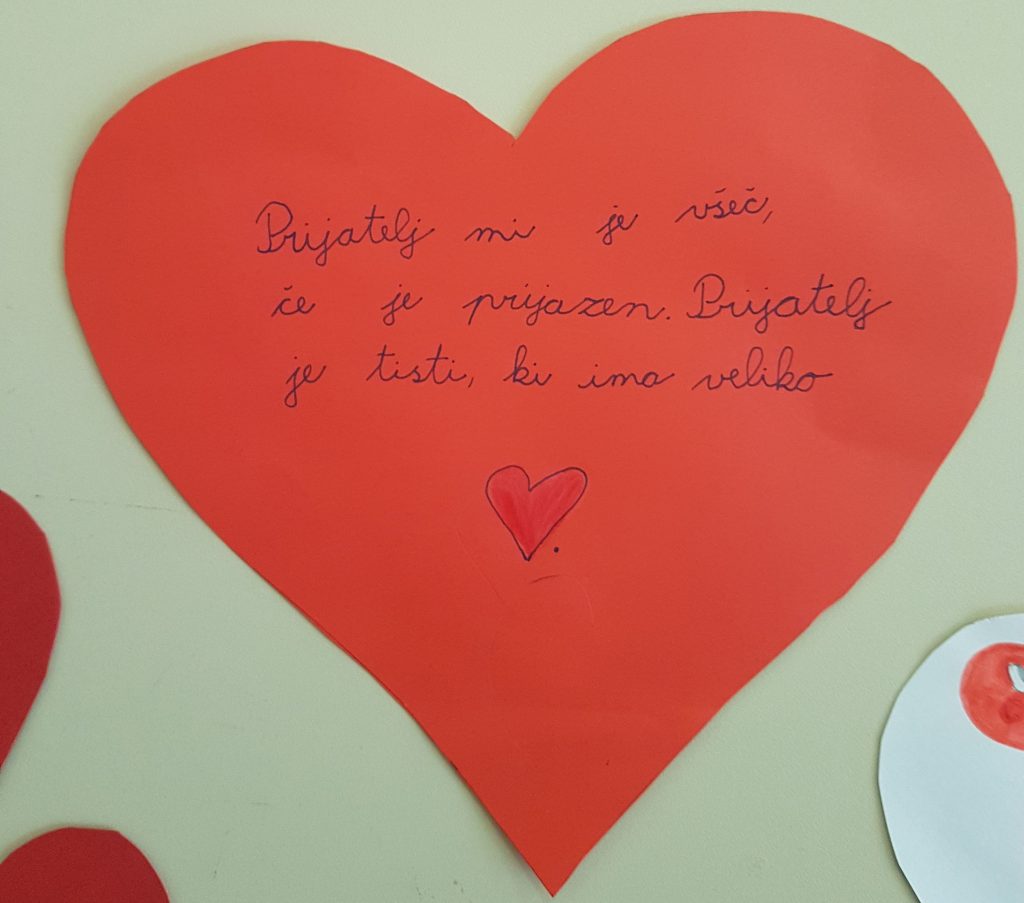 Prijatelj mi je všeč,
če je prijazen. Prijatelj
je tisti, ki ima veliko
.